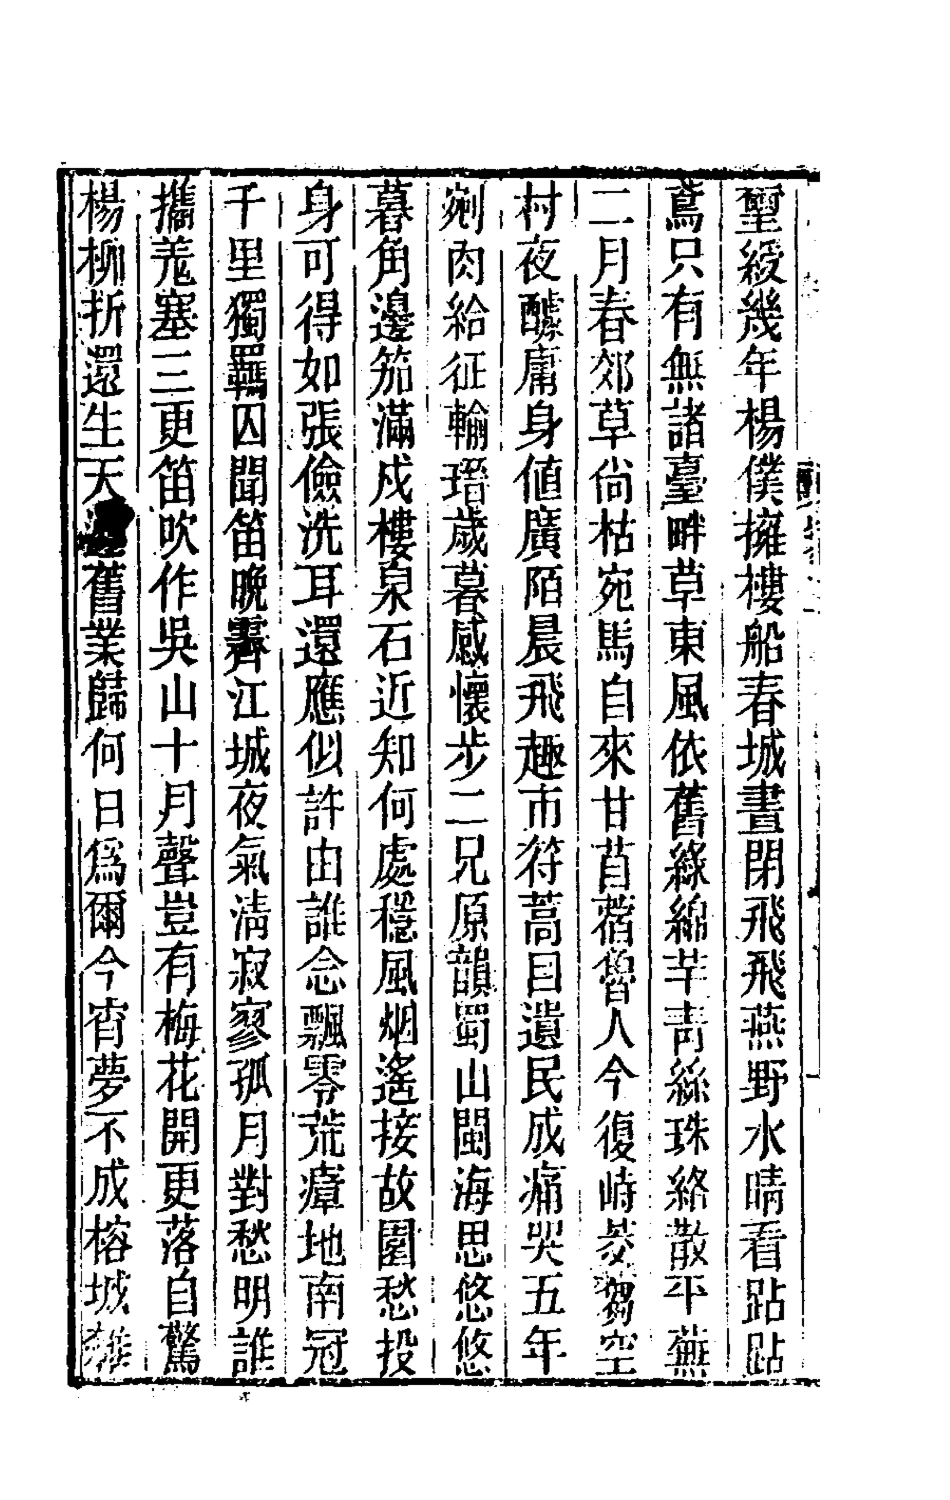 璽綬幾年楊僕擁樓船春城晝閉飛飛燕野水晴看跕跕
鳶只有無諸臺畔草東風依舊綠綿芊靑絲珠絡散平蕪
二月春郊草尙枯宛馬自來甘苜蓿魯人今復峙茭芻空
村夜醵庸身値廣陌晨飛趣市符蒿目遺民成痛哭五年
剜肉給征輸瑨歲暮感懷步二兄原韻蜀山閩海思悠悠
暮角邊笳滿戍樓泉石近知何處穩風烟遙接故園愁投
身可得如張儉洗耳還應似許由誰念飄零荒瘴地南冠
千里獨羈囚聞笛晚霽江城夜氣淸寂寥孤月對愁明誰
攜羗塞三更笛吹作吳山十月聲豈有梅花開更落自驚
楊柳折還生天舊業歸何日爲爾今宵夢不成榕城雜